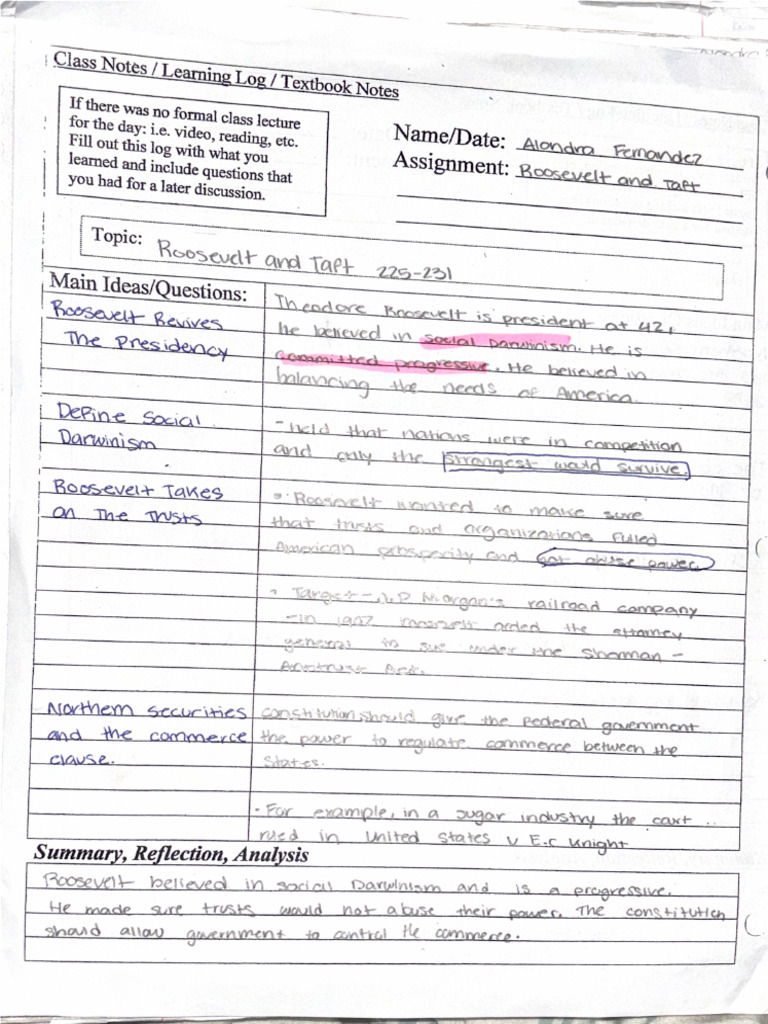 Class Notes / Learning Log / Textbook Notes
If there was no formal class lecture
for the day: i.e. video, reading, etc.
Fill out this log with what you
learned and include questions that
you had for a later discussion.
Name/Date: Alondra Fernandez
Assignment: Roosevelt and Taft
Topic: Roosevelt and Taft 225-231
Main Ideas/Questions:
Roosevelt Revives
The Presidency
Theodore Roosevelt is president at 42,
he believed in social Darwinism. He is
committed progressive. He believed in
balancing the needs of America.
Define Social
Darwinism
- Held that nations were in competition
and only the strongest would survive.
Roosevelt Takes
on The Trusts
• Roosevelt wanted to make sure
that trusts and organizations
American prosperity and not abuse power.
• Target - J.P Morgan's railroad company
- In 1902 roosevelt the attorney
general to sue under the Sherman -
Antitrust Act.
Northern securities
and the commerce
clause.
constitution should give the Federal government
the power to regulate commerce between the
States.
• For example, in a sugar industry the
ruled in United States v E.c Knight
Summary, Reflection, Analysis
Roosevelt believed in social Darwinism and is a progressive.
He made sure trusts would not abuse their power. The constitution
should allow government to control the commerce.